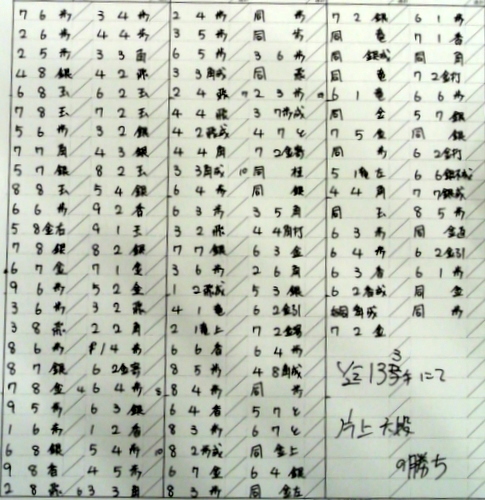 76歩 34歩
26歩 44歩
25歩 33角
48銀 42飛
68玉 62玉
78玉 72玉
56歩 32銀
77角 43銀
57銀 82玉
88玉 54銀
66歩 92香
58金右 91玉
78銀 82銀
67金 71金
96歩 52金
36歩 32飛
38飛 22角
86歩 14歩
87銀 62金寄
78金 64歩
95歩 63銀
16歩 12香
68銀 54歩
98香 45歩
28飛 33角
24歩 同歩
35歩 同歩
65歩 36歩
33角成 同飛
24飛 23歩
44飛 37歩成
42飛成 47と
44角 72金寄
33角成 同桂
64歩 同銀
63歩 35角
32飛 44角打
77銀 63金
36歩 26角
12飛成 53銀
41竜 62金引
21竜上 72金寄
66香 64歩
85歩 48角成
84歩 同歩
64香 57と
83歩 67と
82歩成 同金上
67金 64銀
83歩 同金左
72銀 61歩
同竜 71香
同銀成 同角
同竜 72金打
61竜 66歩
同金 57銀
75金 同銀
同歩 62金打
51竜左 66銀不成
44角 77銀成
同玉 85歩
63歩 同金直
64歩 62金引
63香 61歩
62香成 同金
同角成 同歩
72金
迄133手にて
片上六段
の勝ち